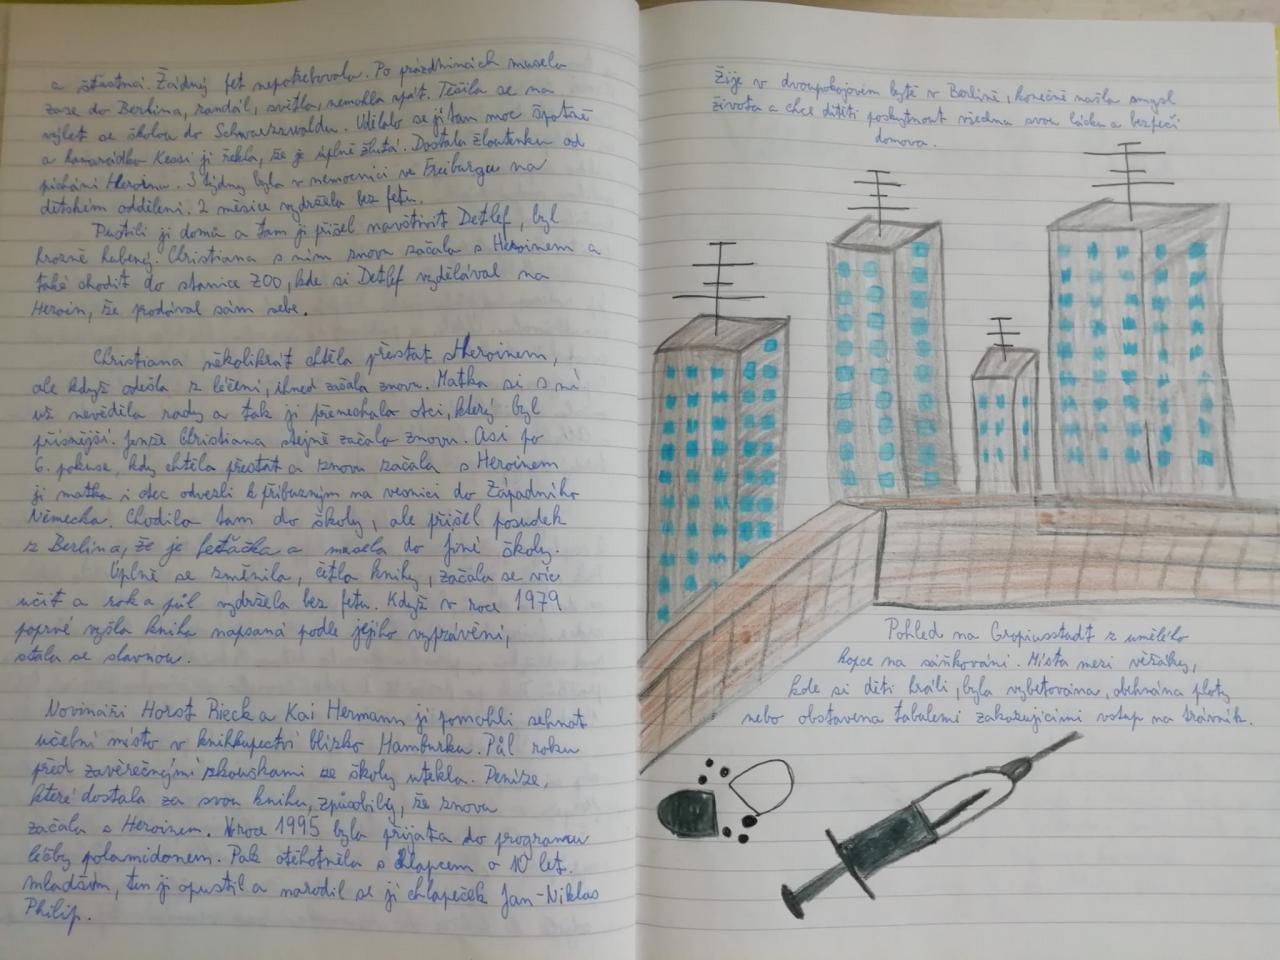 a šťastná. Žádný fet nepotřebovala. Po prázdninách musela
zase do Berlína, randál, světla, nemohla spát. Těšila se na
výlet se školou do Schwarzwaldu. Udělalo se jí tam moc špatně
a kamarádka Kessi jí řekla, že je úplně žlutá. Dostala žloutenku od
píchání Heroinu. 3 týdny byla v nemocnici ve Freiburgu na
dětském oddělení. 2 měsíce vydržela bez fetu.
Pustili ji domů a tam ji přišel navštívit Detlef, byl
hrozně hubený. Christiana s ním znovu začala s Heroinem a
také chodit do stanice ZOO, kde si Detlef vydělával na
Heroin, že prodával sám sebe.
Christiana několikrát chtěla přestat s Heroinem,
ale když odešla z léčení, ihned začala znovu. Matka si s ní
už nevěděla rady a tak ji přenechala otci, který byl
přísnější. Jenže Christiana stejně začala znovu. Asi po
6. pokuse, kdy chtěla přestat a znovu začala s Heroinem
ji matka i otec odvezli k příbuzným na vesnici do Západního
Německa. Chodila tam do školy, ale přišel posudek
z Berlína, že je feťačka a musela do jiné školy.
Úplně se změnila, četla knihy, začala se víc
učit a rok a půl vydržela bez fetu. Když v roce 1979
poprvé vyšla kniha napsaná podle jejího vyprávění,
stala se slavnou.
Novináři Horst Rieck a Kai Hermann jí pomohli sehnat
učební místo v knihkupectví blízko Hamburku. Půl roku
před závěrečnými zkouškami ze školy utekla. Peníze,
které dostala za svou knihu, způsobily, že znovu
začala s Heroinem. V roce 1995 byla přijata do programu
léčby polamidonem. Pak otěhotněla s chlapcem o 10 let
mladším, ten ji opustil a narodil se jí chlapeček Jan-Niklas
Philip.
Žije v dvoupokojovém bytě v Berlíně, konečně našla smysl
života a chce dítěti poskytnout všechnu svou lásku a bezpečí
domova.
Pohled na Gropiusstadt z umělého
kopce na sáňkování. Místa mezi věžáky,
kde si děti hráli, byla vybetována, obehnána ploty
nebo obstavena tabulemi zakazujícími vstup na trávník.